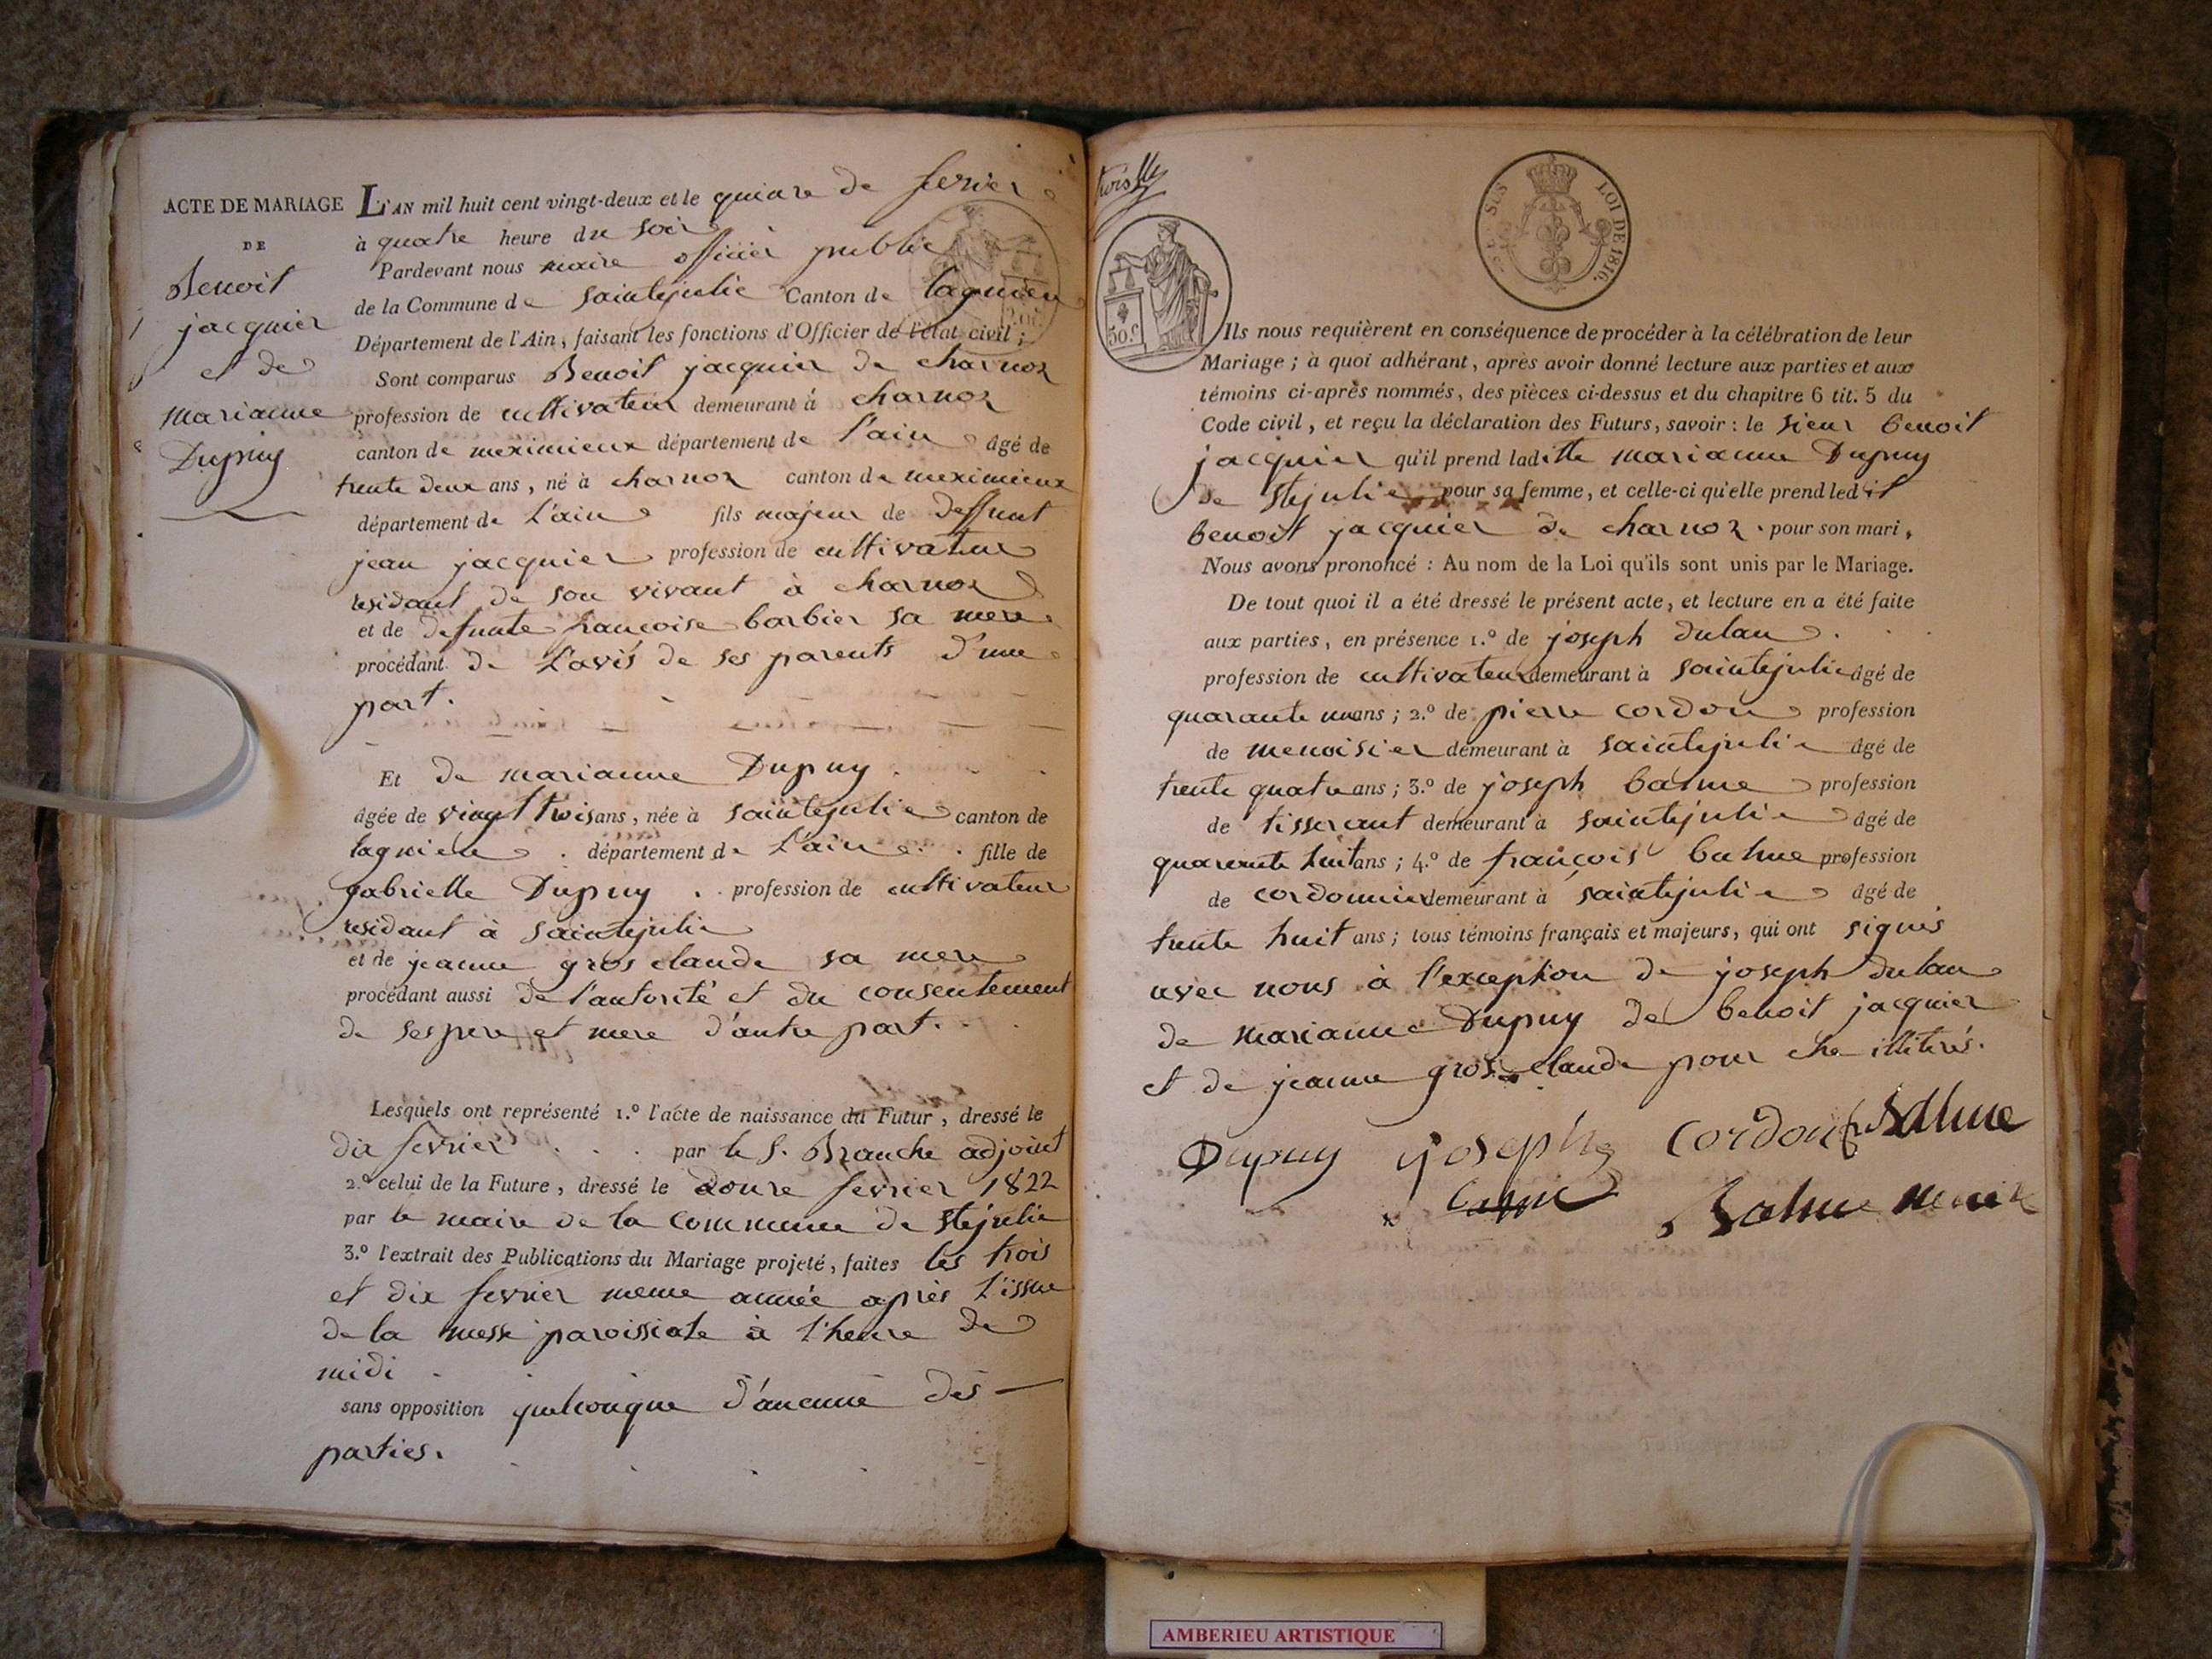 ACTE DE MARIAGE
DE
Benoit
jacquier
et de
marianne
Dupuy
L'AN mil huit cent vingt-deux et le quinze de fevrier
à quatre heure du soir
Pardevant nous maire officier public
de la Commune de saintejulie Canton de lagnieu
Département de l'Ain, faisant les fonctions d'Officier de l'état civil ;
Sont comparus Benoit jacquier de charnoz
profession de cultivateur demeurant à charnoz
canton de meximieux département de l'ain âgé de
trente deux ans, né à charnoz canton de meximieux
département de l'ain fils majeur de deffunt
jean jacquier profession de cultivateur
residant de son vivant à charnoz
et de defunte francoise barbier sa mere
procédant de l'avis de ses parents d'une
part.
Et de marianne Dupuy
âgée de vingt trois ans, née à saintejulie canton de
lagnieu département de l'ain fille de
gabrielle Dupuy profession de cultivateur
residant à saintejulie
et de jeanne gros claude sa mere
procédant aussi de l'autorité et du consentement
de ses pere et mere d'autre part.
Lesquels ont représenté 1.º l'acte de naissance du Futur, dressé le
dix fevrier par le S. Branche adjoint
2.º celui de la Future, dressé le douze fevrier 1822
par le maire de la commune de stejulie
3.º l'extrait des Publications du Mariage projeté, faites les trois
et dix fevrier meme année après l'issue
de la messe paroissiale à l'heure de
midi
sans opposition quelconque d'aucune des
parties.
SUS LOI DE 1816.
50 c
Ils nous requièrent en conséquence de procéder à la célébration de leur
Mariage ; à quoi adhérant, après avoir donné lecture aux parties et aux
témoins ci-après nommés, des pièces ci-dessus et du chapitre 6 tit. 5 du
Code civil, et reçu la déclaration des Futurs, savoir : le sieur benoit
jacquier qu'il prend laditte marianne Dupuy
de stejulie pour sa femme, et celle-ci qu'elle prend ledit
benoit jacquier de charnoz pour son mari,
Nous avons prononcé : Au nom de la Loi qu'ils sont unis par le Mariage.
De tout quoi il a été dressé le présent acte, et lecture en a été faite
aux parties, en présence 1.º de joseph dulau
profession de cultivateur demeurant à saintejulie âgé de
quarante un ans ; 2.º de pierre cordon profession
de menoisier demeurant à saintejulie âgé de
trente quatre ans ; 3.º de joseph balme profession
de tisserant demeurant à saintejulie âgé de
quarente huit ans ; 4.º de françois balme profession
de cordonnier demeurant à saintejulie âgé de
trente huit ans ; tous témoins français et majeurs, qui ont signés
avec nous à l'exception de joseph dulau
de marianne Dupuy de benoit jacquier
et de jeanne gros claude pour etre illiterés.
Dupuy joseph cordon Balme
Balme
AMBERIEU ARTISTIQUE